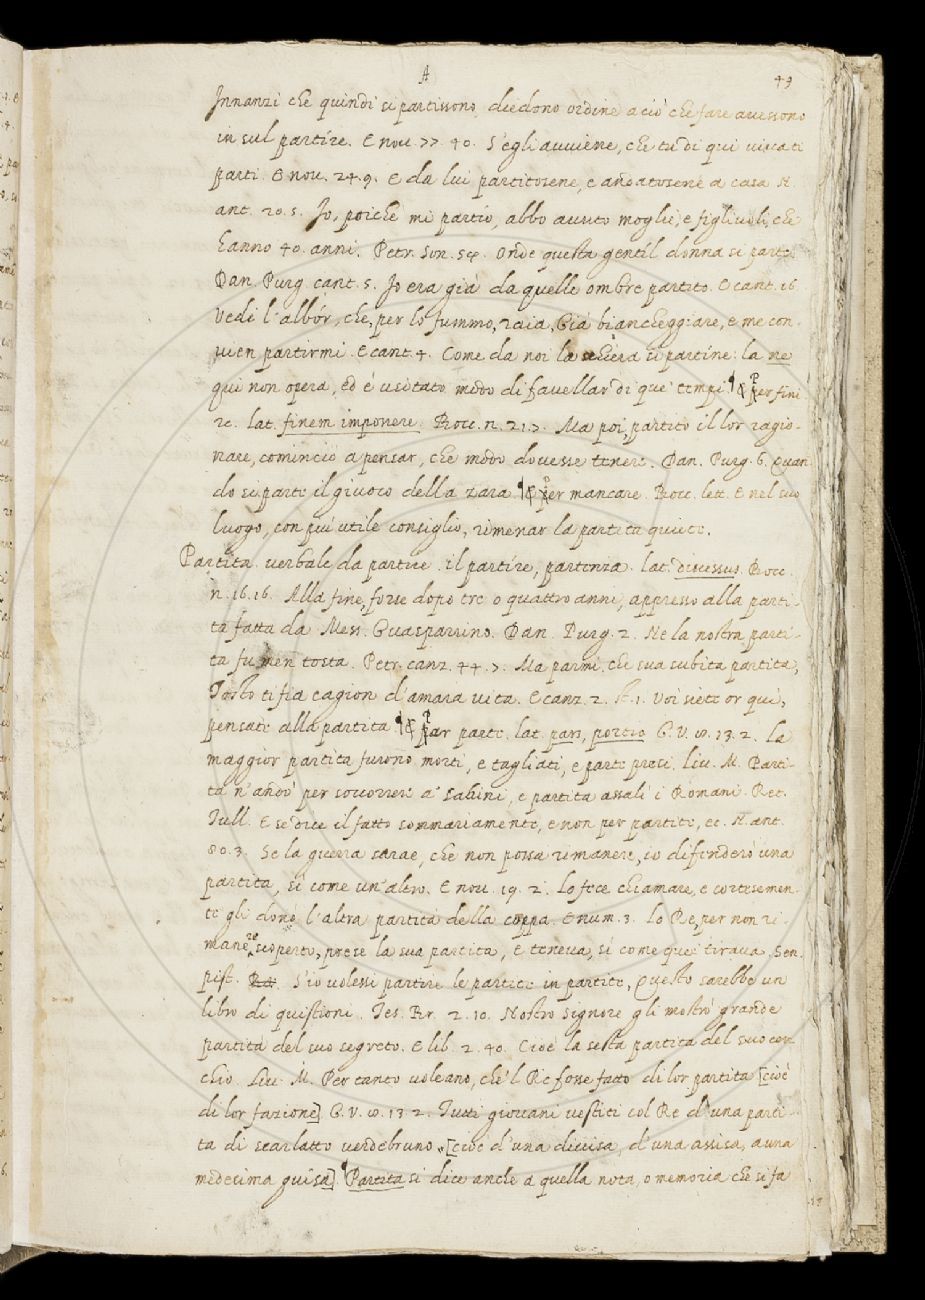 A
49
Innanzi che quindi si partissono, diedono ordine a ciò che fare avessono
in sul partire. E nov. 77. 40. S'egli avviene, che tu di qui viva ti
parti. E nov. 24. 9. E da lui partitosene, e andatosene a casa N.
ant. 20. 5. Io, poiche mi partio, abbo avuto moglie, e figliuoli, che
hanno 40. anni. Petr. Son. Onde questa gentil donna si parte.
Dan. Purg. cant. 5. Io era già da quelle ombre partito. E cant. 16
Vedi l'albór, che, per lo fummo, raia, Già biancheggiare, e me con-
vien partirmi. E cant. 4. Come da noi la schiera si partine: la ne
qui non opera, ed é usitato modo di favellar di que' tempi ¶ per fini
re. lat. finem imponere. Bocc. n. 21. 7. Ma poi, partito il lor ragio-
nare, cominciò a pensar, che modo dovesse tenere. Dan. Purg. 6. Quan
do si parte il giuoco della zara ¶ per mancare. Bocc. lett. E nel suo
luogo, con piú utile consiglio, rimenar la partita quiete.
Partita. verbale da partire. il partire, partenza. lat. discessus. Bocc.
n. 16. 16. Alla fine, forse dopo tre o quattro anni, appresso alla parti-
ta fatta da Mess. Guasparrino. Dan. Purg. 2. Ne la nostra parti-
ta fu men tosta. Petr. canz. 44. 7. Ma parmi, che sua subita partita,
Tosto ti fia cagion d'amara vita. E canz. 2. st. 1. Voi siete or quì,
pensate alla partita ¶ par parte. lat. pars, portio G. V. 10. 13. 2. La
maggior partita furono morti, e tagliati, e parte presi. Liv. M. Parti-
ta n'andò per soccorrere a' Sabini, e partita assalì i Romani. Ret.
Tull. E se dice il fatto sommariamente, e non per partite, ec. N. ant.
80. 3. Se la guerra sarae, che non possa rimanere, io difenderò una
partita, sì come un'altro. E nov. 19. 2. Lo fece chiamare, e cortesemen-
te gli donò l'altra partita della coppa. E num. 3. Lo Re, per non ri-
manere scoperto, prese la sua partita, e teneva, sì come que' tirava. Sen.
pist. S'io volessi partire le partite in partite, Questo sarebbe un
libro di quistioni. Tes. Br. 2. 10. Nostro Signore gli mostrò grande
partita del suo segreto. E lib. 2. 40. Cioè la sesta partita del suo cer
chio. Liv. M. Per tanto voleano, che'l Re fosse fatto di lor partita [cioè
di lor fazione] G. V. 10. 13 2. Tutti giovani vestiti col Re d'una parti-
ta di scarlatto verdebruno [cioè d'una divisa, d'una assisa, a una
medesima guisa]. Partita si dice anche a quella nota, o memoria che si fa